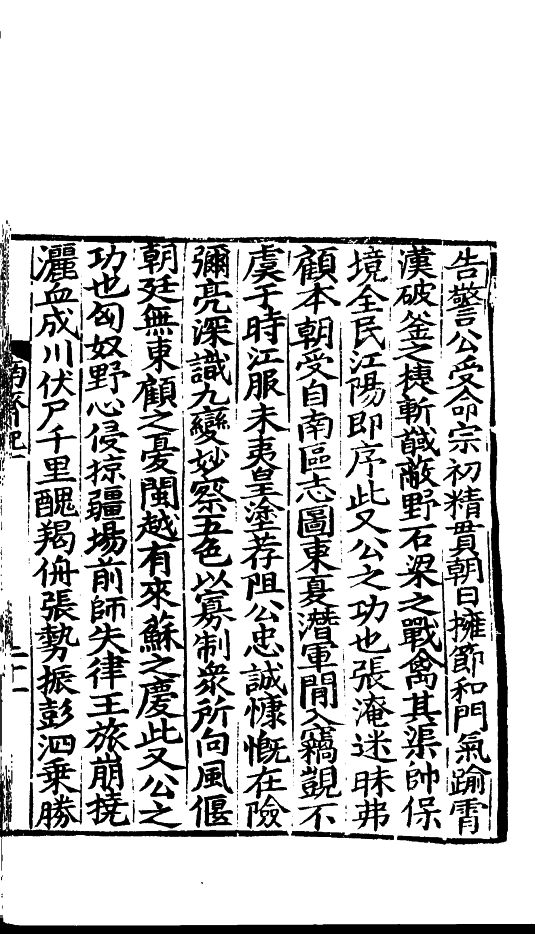 告警公受命宗初精貫朝日擁節和門氣踰霄
漢破釜之捷斬馘蔽野石梁之戰禽其渠帥保
境全民江陽即序此又公之功也張淹迷昧弗
顧本朝受自南區志圖東夏潛軍間入竊覬不
虞于時江服未夷皇塗荐阻公忠誠慷慨在險
彌亮深識九變妙察五色以寡制衆所向風偃
朝廷無東顧之憂閩越有來蘇之慶此又公之
功也匈奴野心侵掠疆埸前師失律王旅崩撓
灑血成川伏尸千里醜羯侜張勢振彭泗乗勝
南齊紀一
二十一